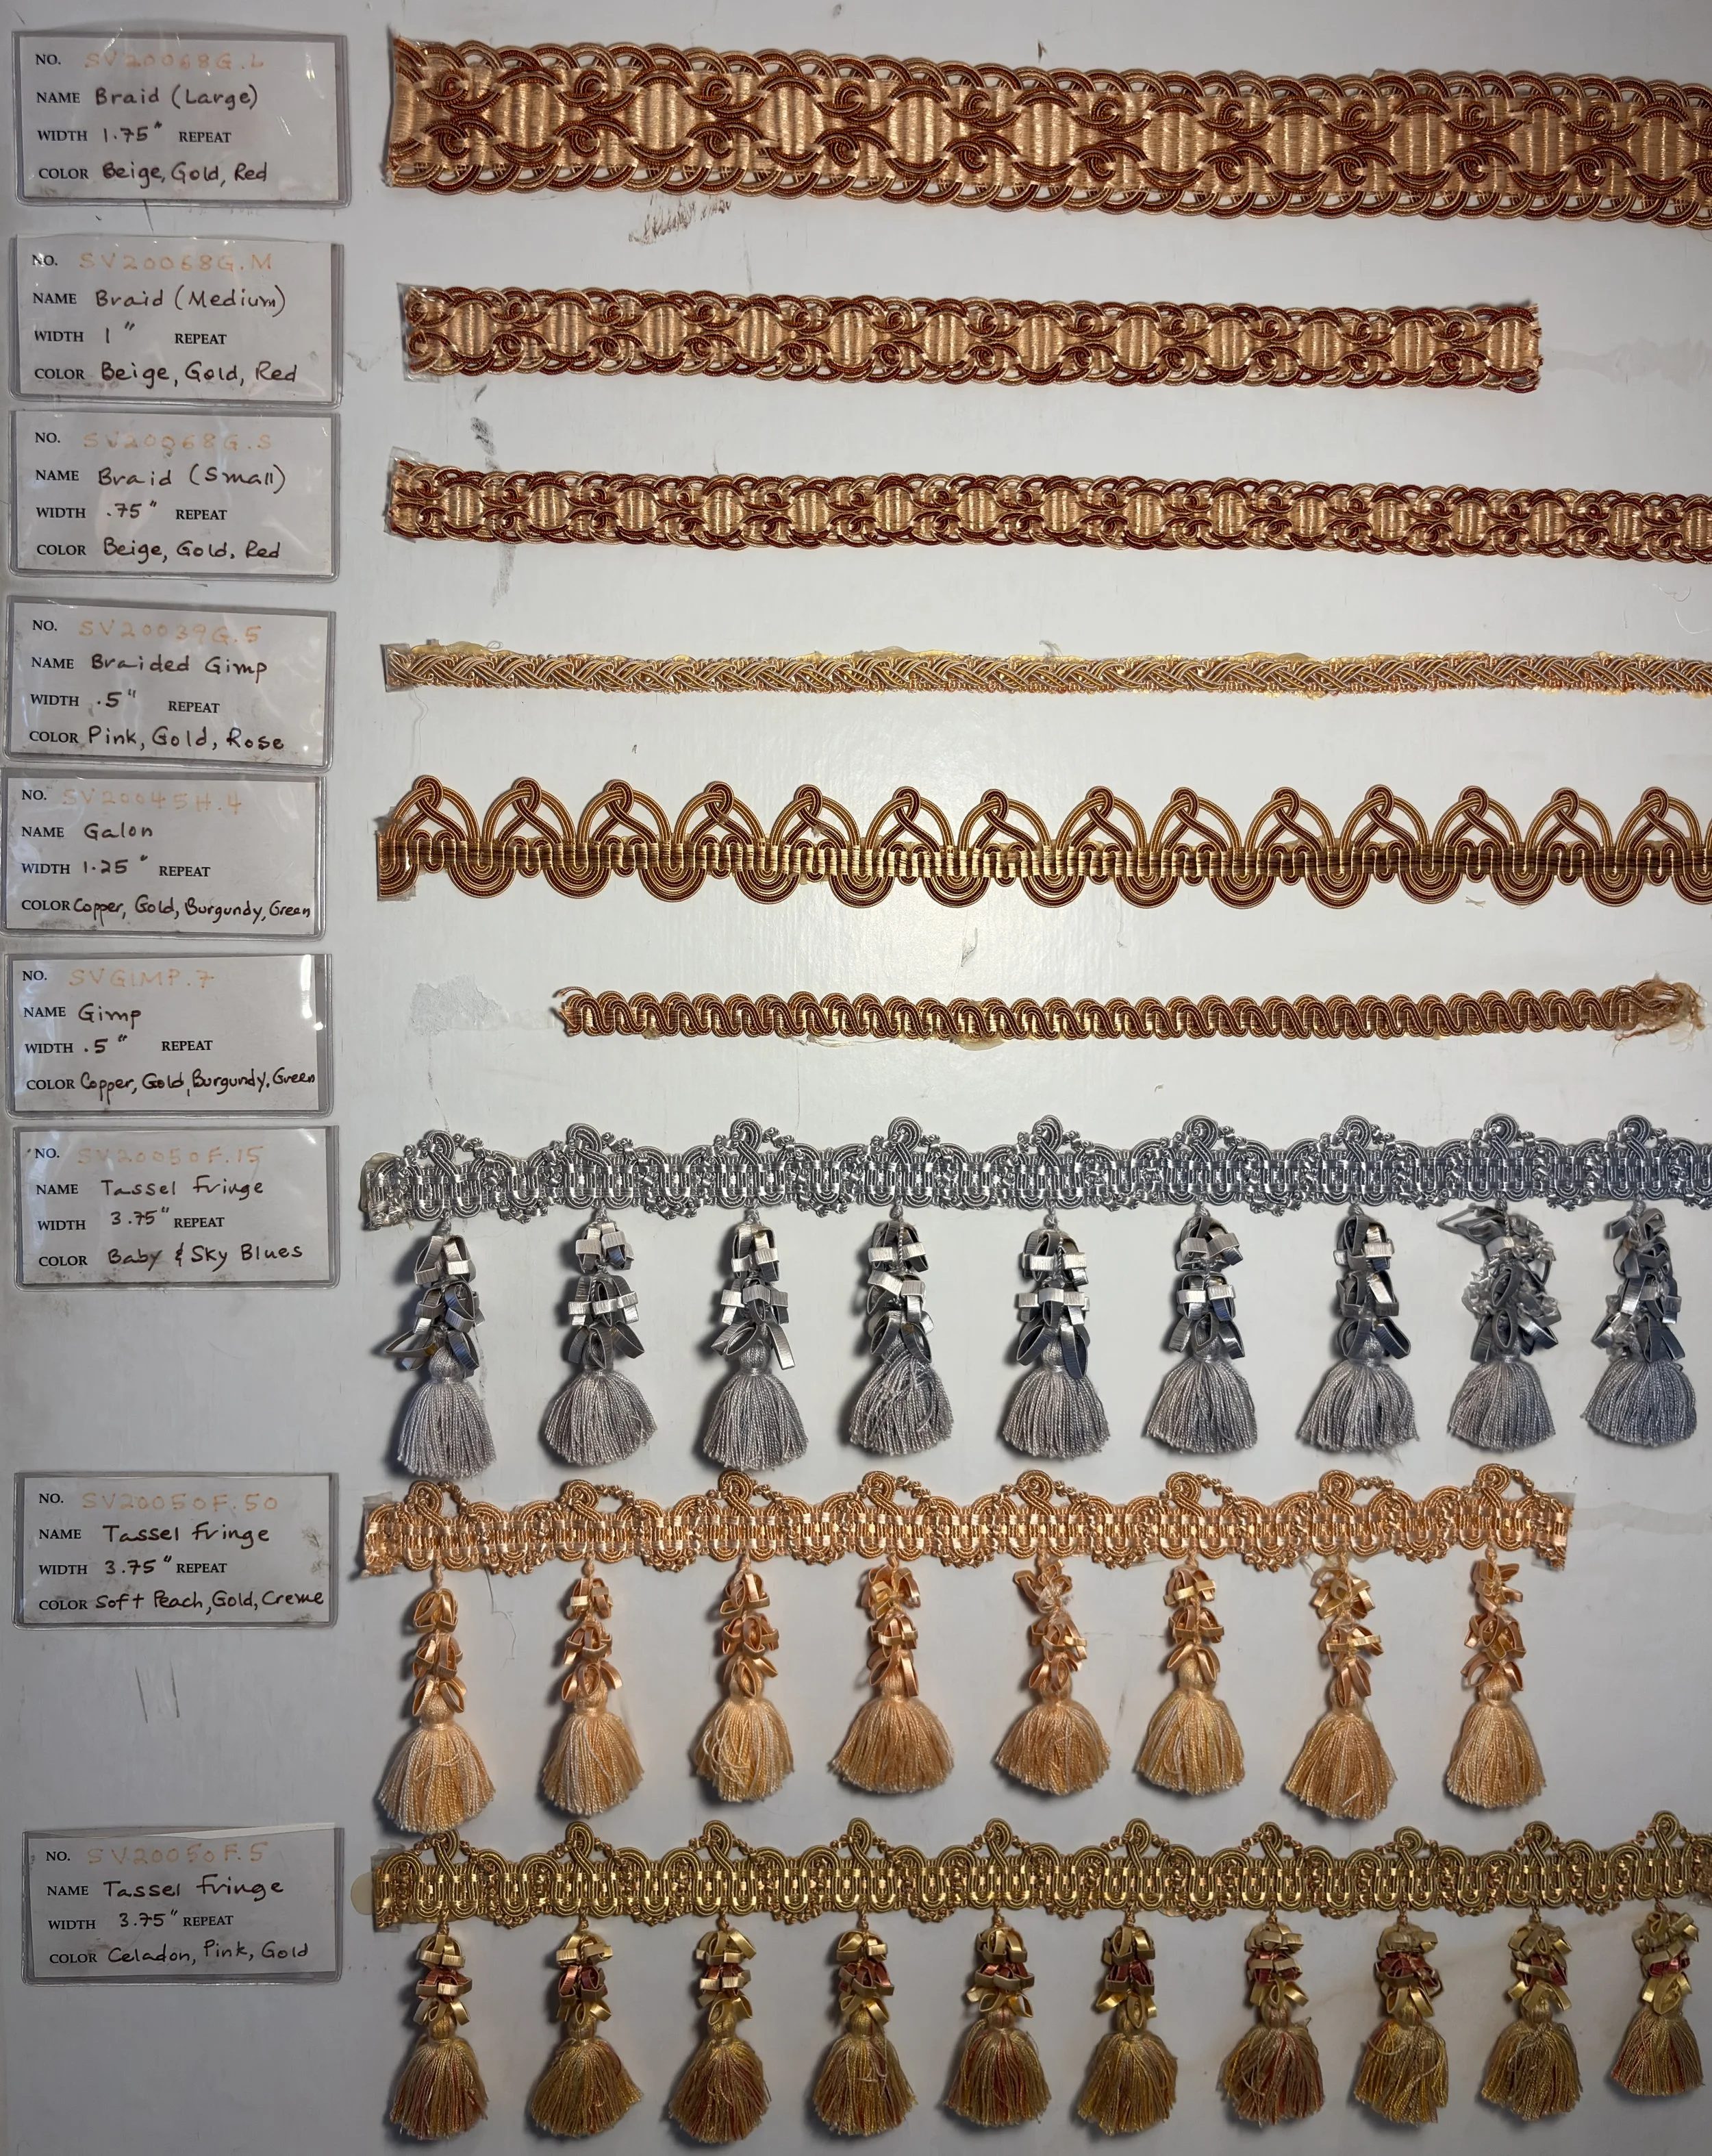 NO. SV20068G.L
NAME Braid (Large)
WIDTH 1.75" REPEAT
COLOR Beige, Gold, Red
NO. SV20068G.M
NAME Braid (Medium)
WIDTH 1" REPEAT
COLOR Beige, Gold, Red
NO. SV20068G.S
NAME Braid (Small)
WIDTH .75" REPEAT
COLOR Beige, Gold, Red
NO. SV20039G.5
NAME Braided Gimp
WIDTH .5" REPEAT
COLOR Pink, Gold, Rose
NO. SV20045H.4
NAME Galon
WIDTH 1.25" REPEAT
COLOR Copper, Gold, Burgundy, Green
NO. SVGIMP.7
NAME Gimp
WIDTH .5" REPEAT
COLOR Copper, Gold, Burgundy, Green
NO. SV20050F.15
NAME Tassel Fringe
WIDTH 3.75" REPEAT
COLOR Baby & Sky Blues
NO. SV20050F.50
NAME Tassel Fringe
WIDTH 3.75" REPEAT
COLOR Soft Peach, Gold, Creme
NO. SV20050F.5
NAME Tassel Fringe
WIDTH 3.75" REPEAT
COLOR Celadon, Pink, Gold